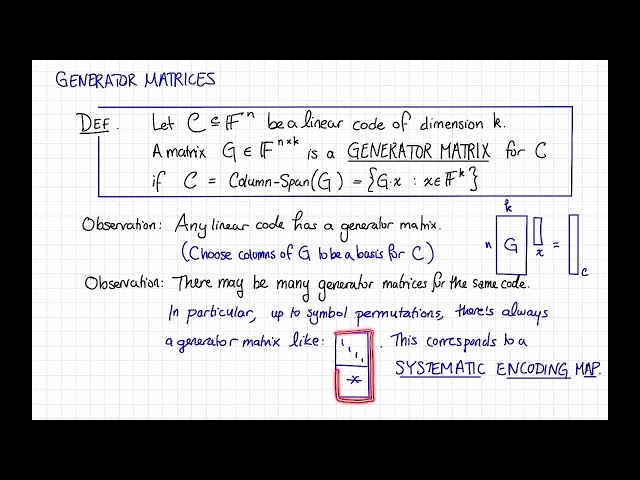 GENERATOR MATRICES
DEF. Let C ⊆ F^n be a linear code of dimension k.
A matrix G ∈ F^{n×k} is a GENERATOR MATRIX for C
if C = Column-Span(G) = {G·x : x∈F^k}
Observation: Any linear code has a generator matrix.
(Choose columns of G to be a basis for C)
k
n G x = c
Observation: There may be many generator matrices for the same code.
In particular, up to symbol permutations, there's always
a generator matrix like: . This corresponds to a
SYSTEMATIC ENCODING MAP.
1 1 1 1
*